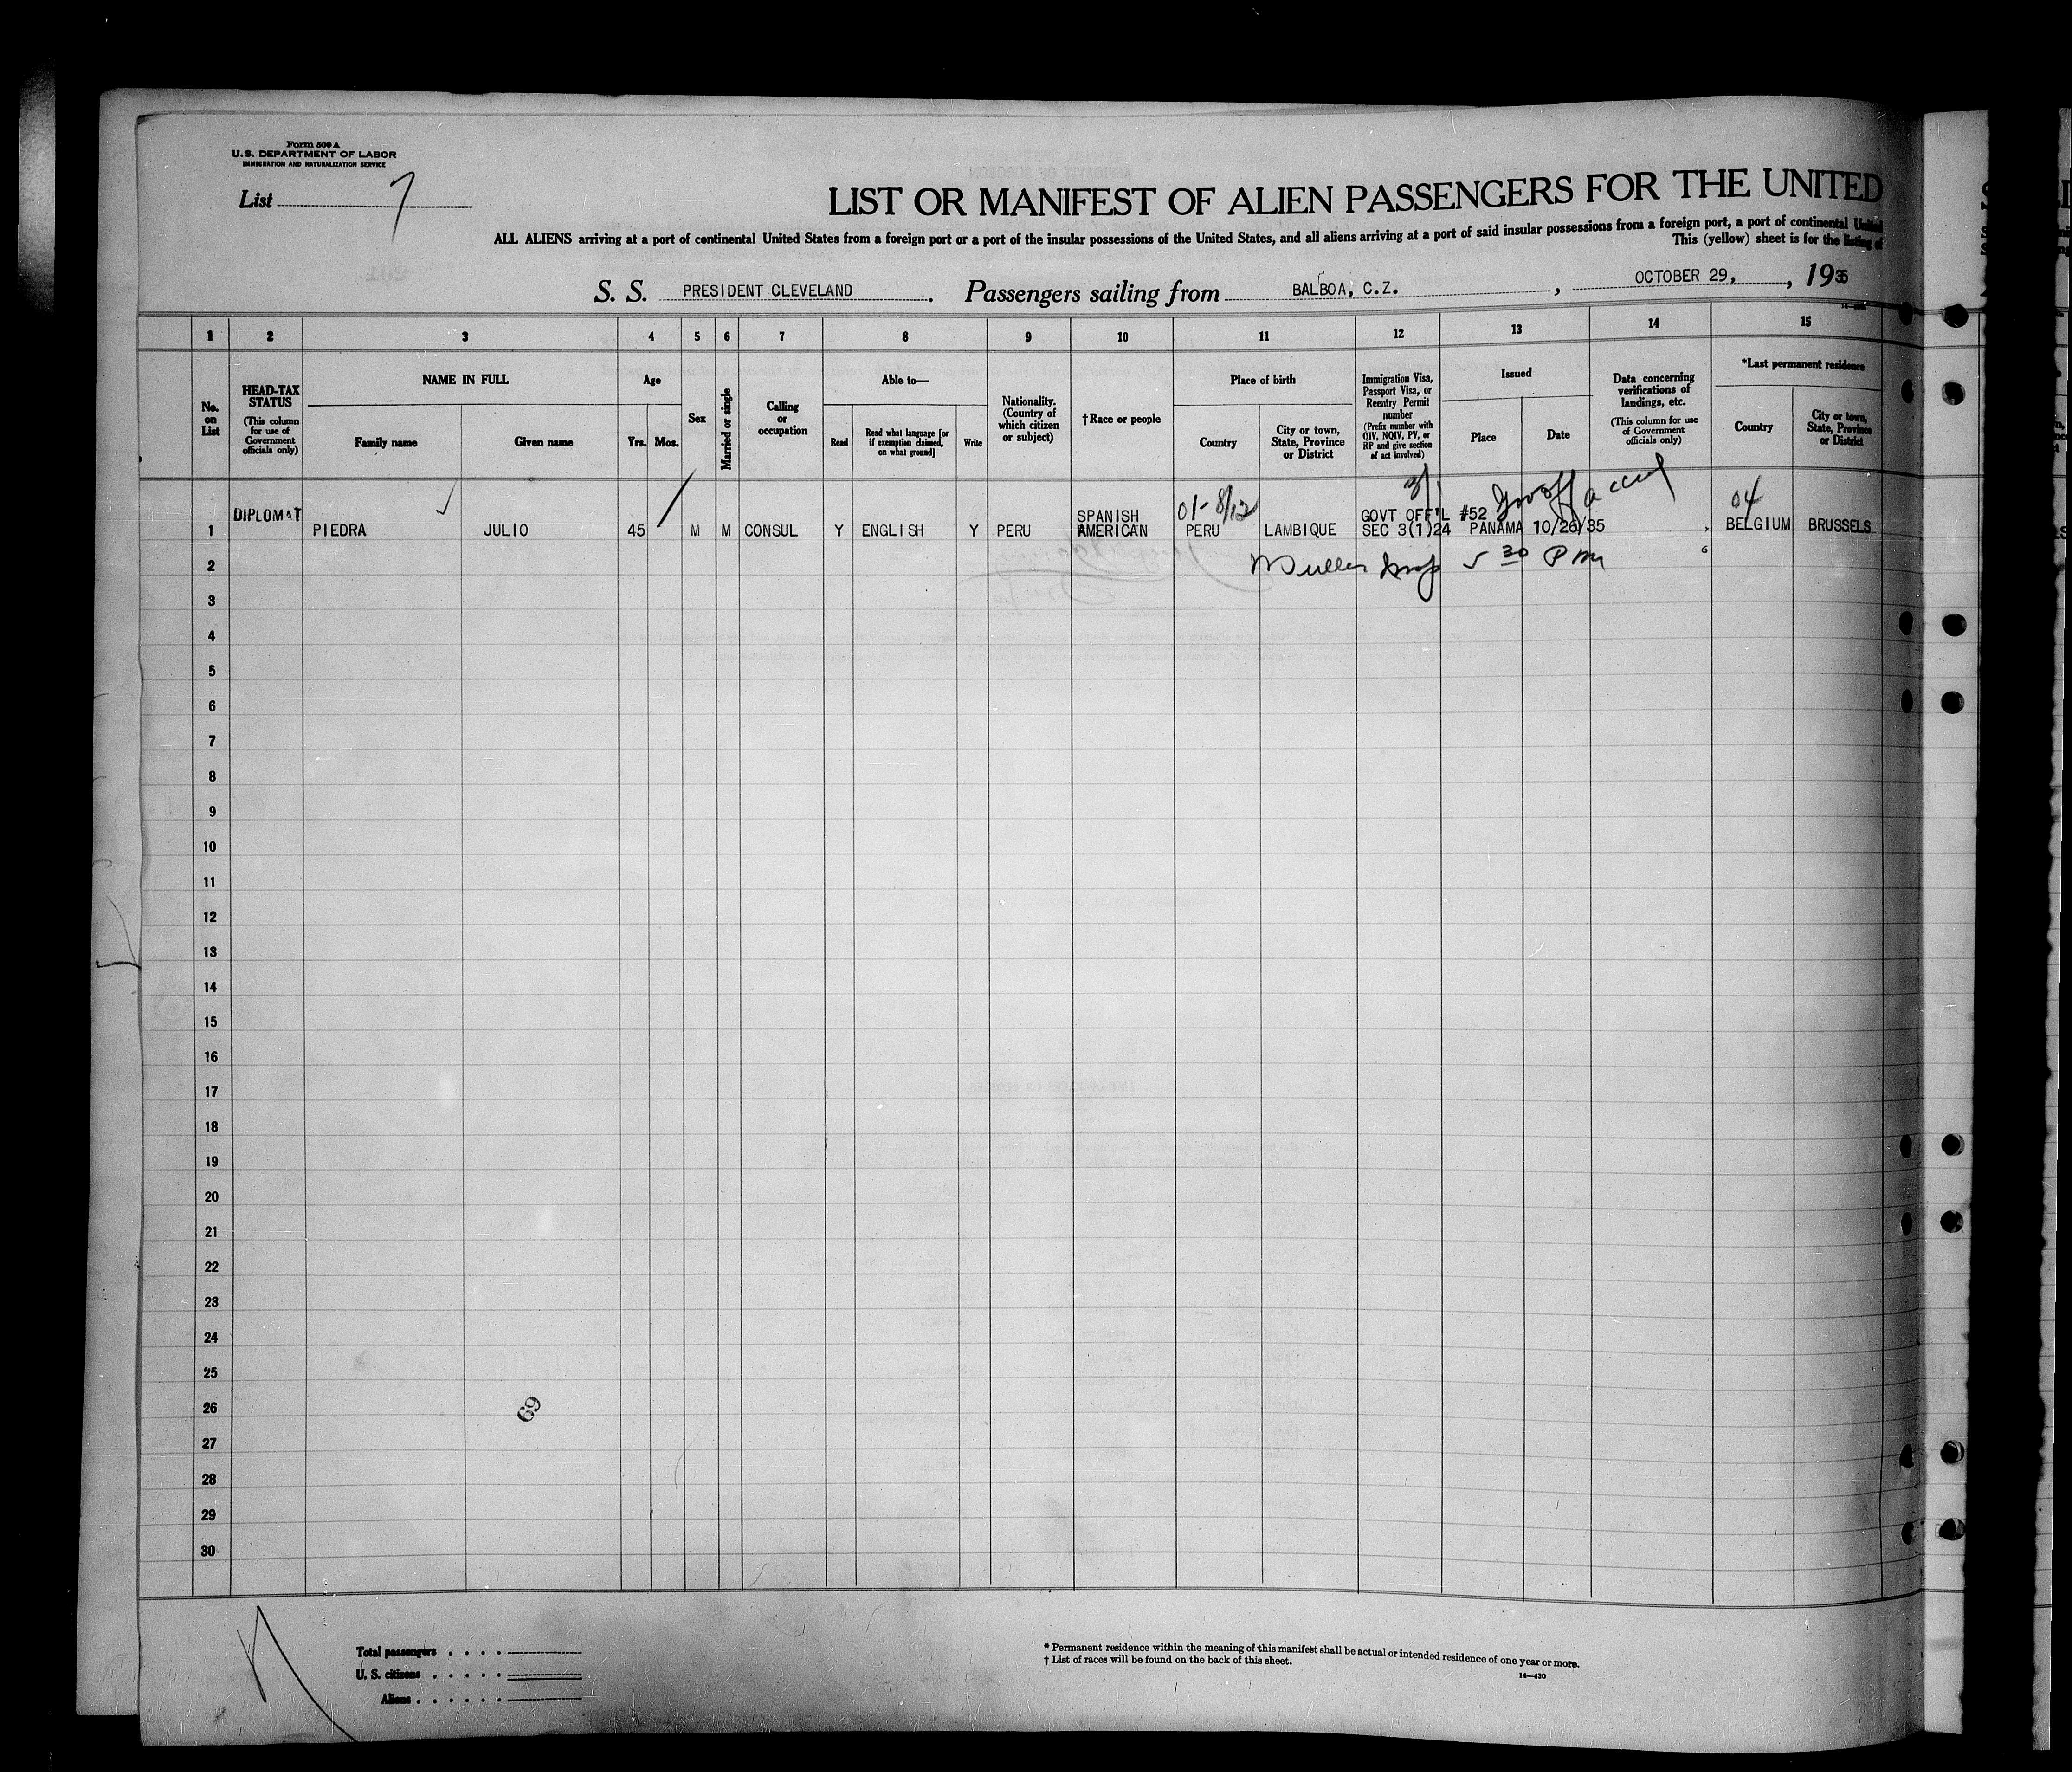 Form 500 A
U.S. DEPARTMENT OF LABOR
IMMIGRATION AND NATURALIZATION SERVICE
List 7
LIST OR MANIFEST OF ALIEN PASSENGERS FOR THE UNITED
ALL ALIENS arriving at a port of continental United States from a foreign port or a port of the insular possessions of the United States, and all aliens arriving at a port of said insular possessions from a foreign port, a port of continental United
This (yellow) sheet is for the listing of
S. S. PRESIDENT CLEVELAND. Passengers sailing from BALBOA, C.Z., OCTOBER 29, , 1935
1 2 3 4 5 6 7 8 9 10 11 12 13 14 15
No. on List
HEAD-TAX STATUS
(This column for use of Government officials only)
NAME IN FULL
Family name
Given name
Age
Yrs. Mos.
Sex
Married or single
Calling or occupation
Able to—
Read
Read what language [or if exemption claimed, on what ground]
Write
Nationality. (Country of which citizen or subject)
†Race or people
Place of birth
Country
City or town, State, Province or District
Immigration Visa, Passport Visa, or Reentry Permit number
(Prefix number with QIV, NQIV, PV, or RP and give section of act involved)
Issued
Place
Date
Data concerning verifications of landings, etc.
(This column for use of Government officials only)
*Last permanent residence
Country
City or town, State, Province or District
01-8/12 04
DIPLOMAT SPANISH GOVT OFF'L #52
1 PIEDRA JULIO 45 M M CONSUL Y ENGLISH Y PERU AMERICAN PERU LAMBIQUE SEC 3(1)24 PANAMA 10/26/35 BELGIUM BRUSSELS
2 5 30 PM
3
4
5
6
7
8
9
10
11
12
13
14
15
16
17
18
19
20
21
22
23
24
25
26
69
27
28
29
30
Total passengers
U. S. citizens
Aliens
* Permanent residence within the meaning of this manifest shall be actual or intended residence of one year or more.
† List of races will be found on the back of this sheet.
14—420